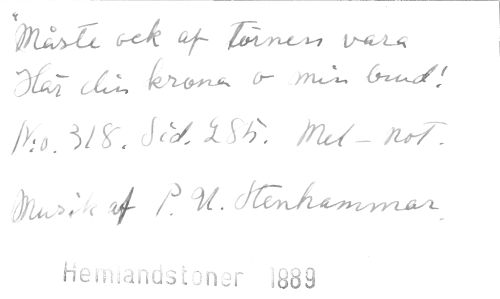 "Måste ock af törnen vara
Här din krona o min brud!
N:o. 318. Sid. 285. Mel-not.
Musik af P. U. Stenhammar.
Hemlandstoner 1889